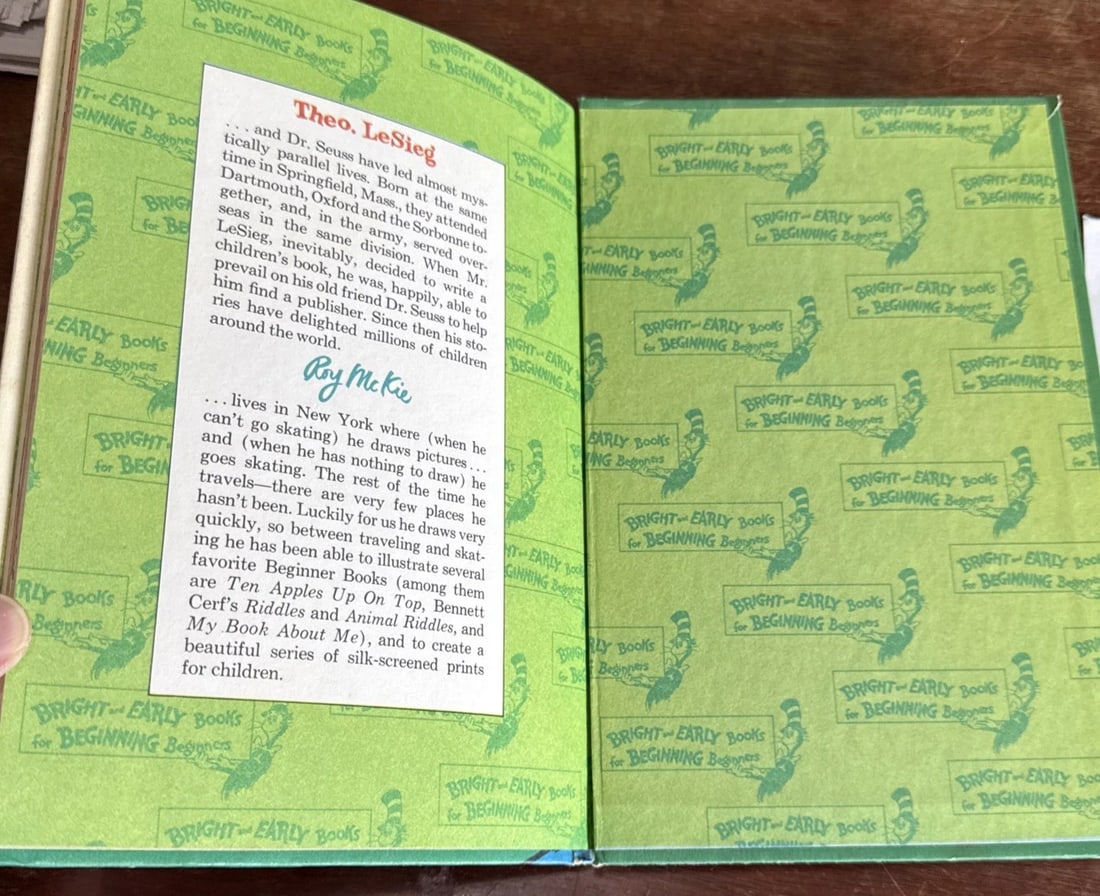 Theo. LeSieg
. . . and Dr. Seuss have led almost mys-
tically parallel lives. Born at the same
time in Springfield, Mass., they attended
Dartmouth, Oxford and the Sorbonne to-
gether, and, in the army, served over-
seas in the same division. When Mr.
LeSieg, inevitably, decided to write a
children's book, he was, happily, able to
prevail on his old friend Dr. Seuss to help
him find a publisher. Since then his sto-
ries have delighted millions of children
around the world.
Roy McKie
. . . lives in New York where (when he
can't go skating) he draws pictures . . .
and (when he has nothing to draw) he
goes skating. The rest of the time he
travels—there are very few places he
hasn't been. Luckily for us he draws very
quickly, so between traveling and skat-
ing he has been able to illustrate several
favorite Beginner Books (among them
are Ten Apples Up On Top, Bennett
Cerf's Riddles and Animal Riddles, and
My Book About Me), and to create a
beautiful series of silk-screened prints
for children.
BRIGHT and EARLY BOOKS
for BEGINNING Beginners